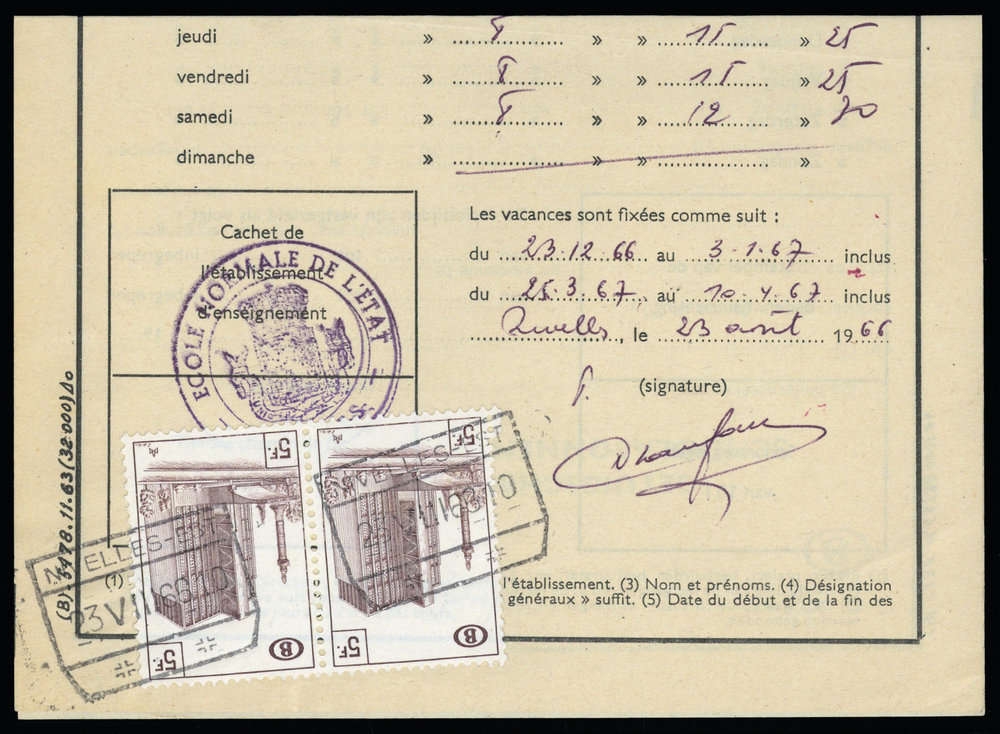 jeudi » 8 » » 15 » 25
vendredi » 8 » » 15 » 25
samedi » 8 » » 12 » 20
dimanche » » » »
Cachet de
l'établissement
d'enseignement
ECOLE NORMALE DE L'ÉTAT
Les vacances sont fixées comme suit :
du 23.12.66 au 3.1.67 inclus
du 25.3.67 au 10.4.67 inclus
Nivelles, le 23 août 1966
(signature)
(B) 3478.11.63 (32 000) Do
5F. 5F.
5F. B 5F. B
NIVELLES-EST
23 VIII 66 10
NIVELLES-EST
23 VIII 66 10
(1)
l'établissement. (3) Nom et prénoms. (4) Désignation
généraux » suffit. (5) Date du début et de la fin des